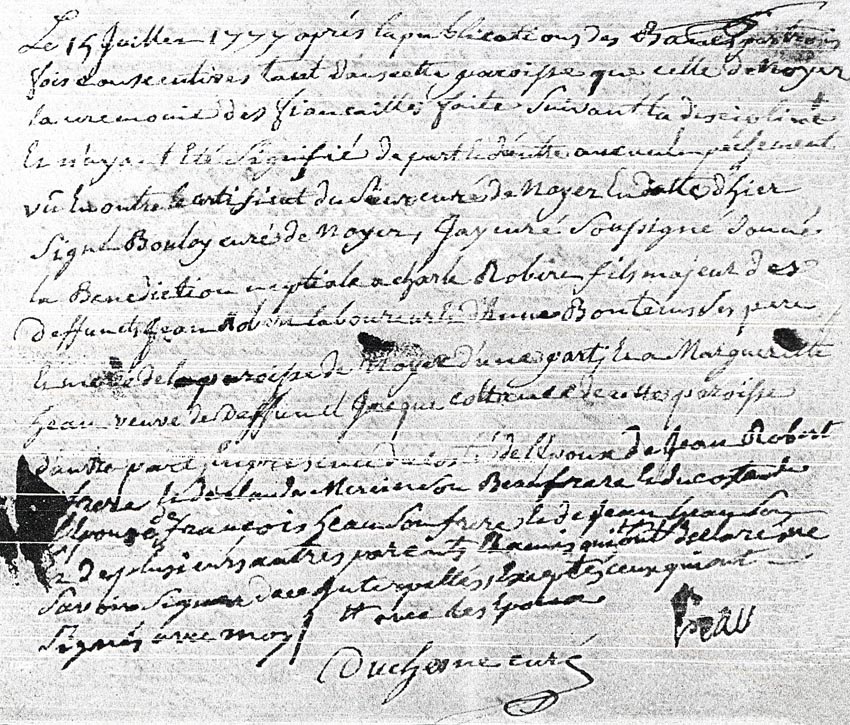 Le 15 Juillet 1777 après la publications des Bancs par trois
fois consecutives tant dans cette paroisse que celle de Noyer
la ceremonie des fiancailles faite suivant la discipline
Et n'ayant Eté Signifié de part ni d'autre aucun empeschement
vû En outre le certificat du Sieur curé de Noyer En datte d'hier
Signé Bouloy curé de Noyer, Jay curé Soussigné donné
la Benediction nuptiale a charle Robert fils majeur des
deffuncts Jean Robert laboureur et d'Anne Bontems Ses pere
Et mere de la paroisse de Noyer d'une part, Et a Margueritte
heau veuve de Deffunct Jacque de cette paroisse
d'autre part, En presence du costé de l'Epoux de Jean Robert
frere Et de claude Mercier Son Beaufrere Et du costé de
l'Epouse François heau Son frere Et de Jean heau Son
Et de plusieurs autres parents Et amis qui ont declaré ne
Savoir Signer de ce Interpellés, Excepté ceux qui ont
Signés avec moy / # avec des Epoux
heau
Duchesne curé